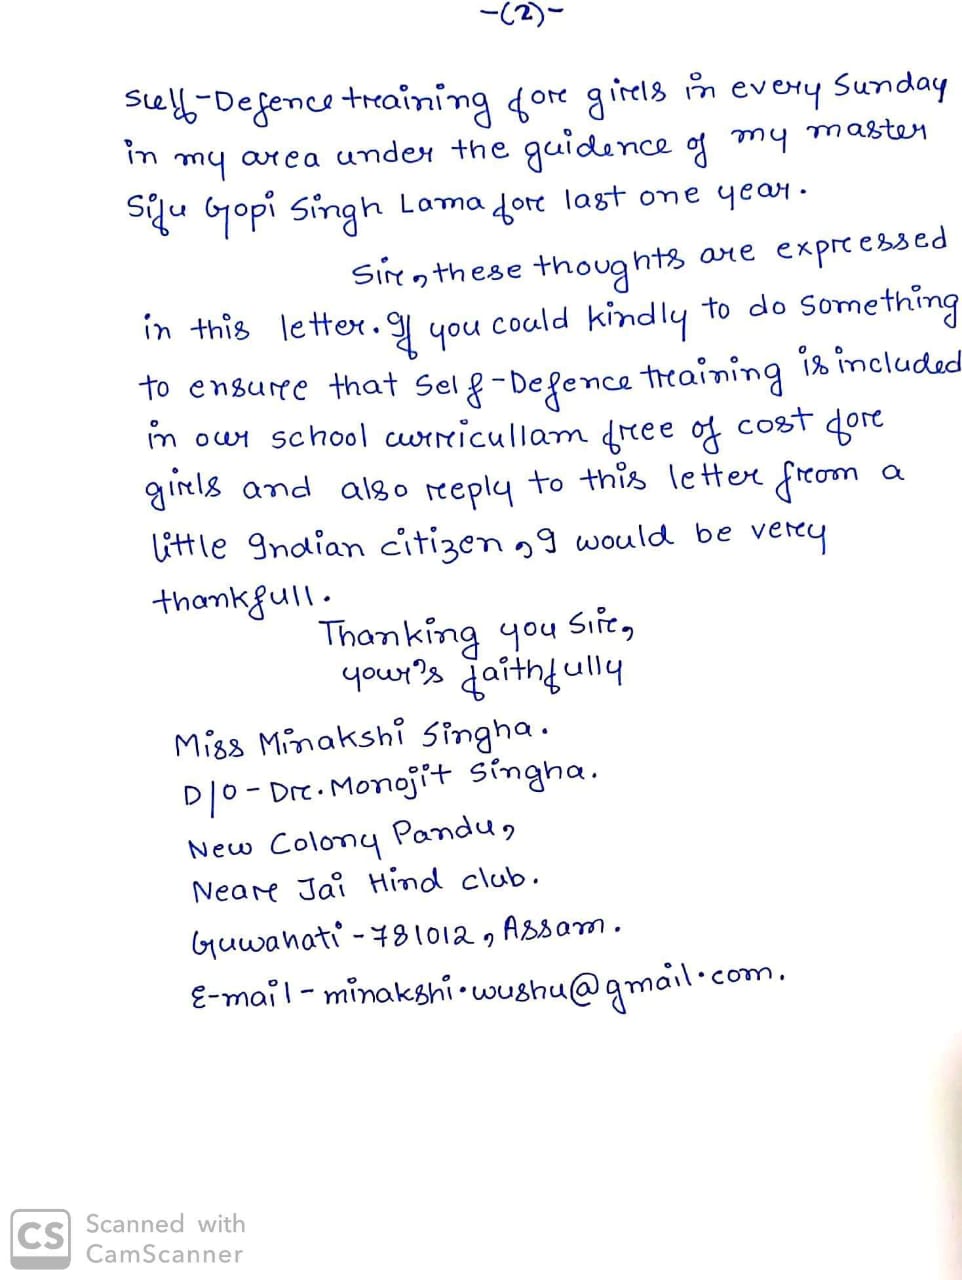 -(2)-
Self-Defence training for girls in every Sunday
in my area under the guidence of my master
Sifu Gopi Singh Lama for last one year.
Sir, these thoughts are expressed
in this letter. If you could kindly to do something
to ensure that Self-Defence training is included
in our school curricullam free of cost for
girls and also reply to this letter from a
little Indian citizen, I would be very
thankfull.
Thanking you Sir,
your's faithfully
Miss Minakshi Singha.
D/O - Dr. Monojit Singha.
New Colony Pandu,
Near Jai Hind club.
Guwahati - 781012, Assam.
E-mail - minakshi.wushu@gmail.com.
CS Scanned with
CamScanner